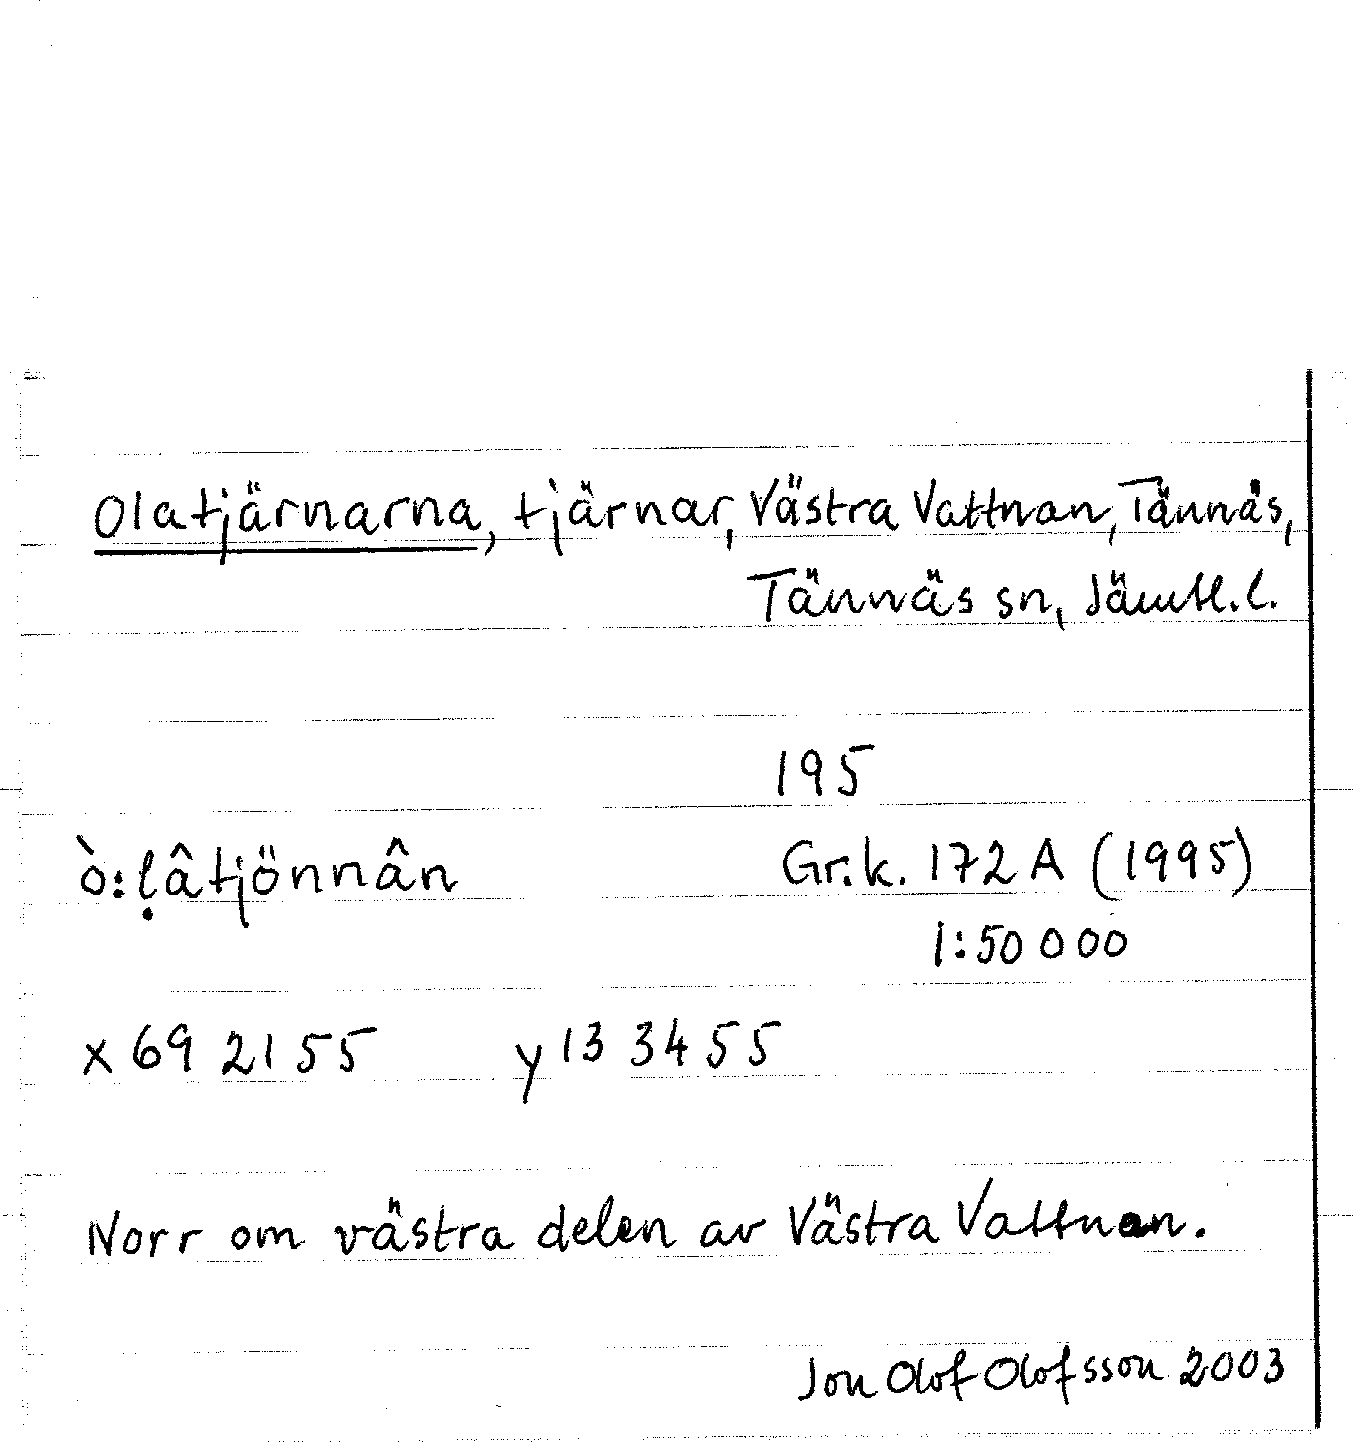 Olatjärnarna, tjärnar, Västra Vattnan, Tännäs,
Tännäs sn, Jämtl.l.
195
ò:ḷâtjönnân
Gr.k. 172 A (1995)
1:50 000
x 69 21 55 y 13 34 55
Norr om västra delen av Västra Vattnan.
Jon Olof Olofsson 2003